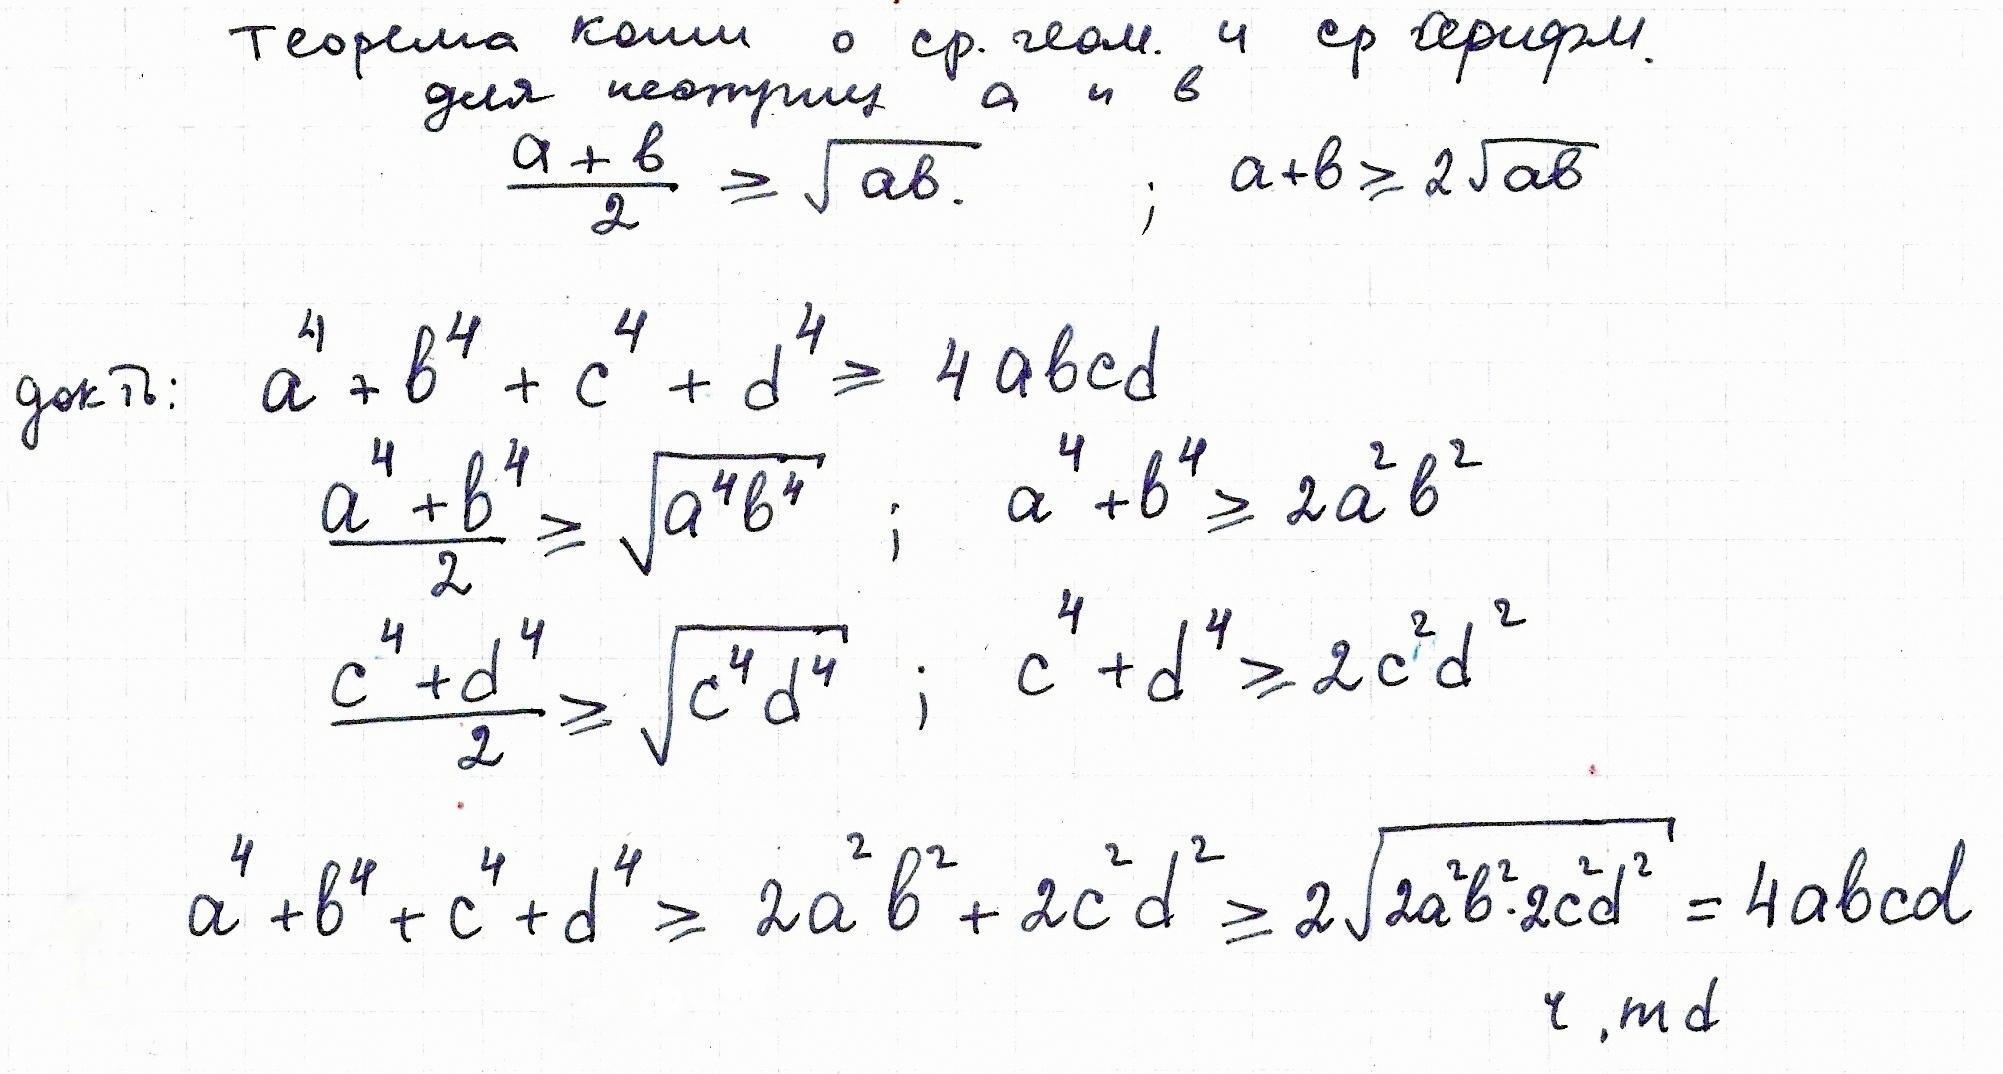 Теорема Коши о ср. геом. и ср арифм.
для неотриц а и в
(a + b)/2 ≥ √(ab). ; a+b ≥ 2√(ab)
док ть: a⁴ + b⁴ + c⁴ + d⁴ ≥ 4abcd
(a⁴ + b⁴)/2 ≥ √(a⁴b⁴) ; a⁴ + b⁴ ≥ 2a²b²
(c⁴ + d⁴)/2 ≥ √(c⁴d⁴) ; c⁴ + d⁴ ≥ 2c²d²
a⁴ + b⁴ + c⁴ + d⁴ ≥ 2a²b² + 2c²d² ≥ 2√(2a²b²·2c²d²) = 4abcd
ч.тд